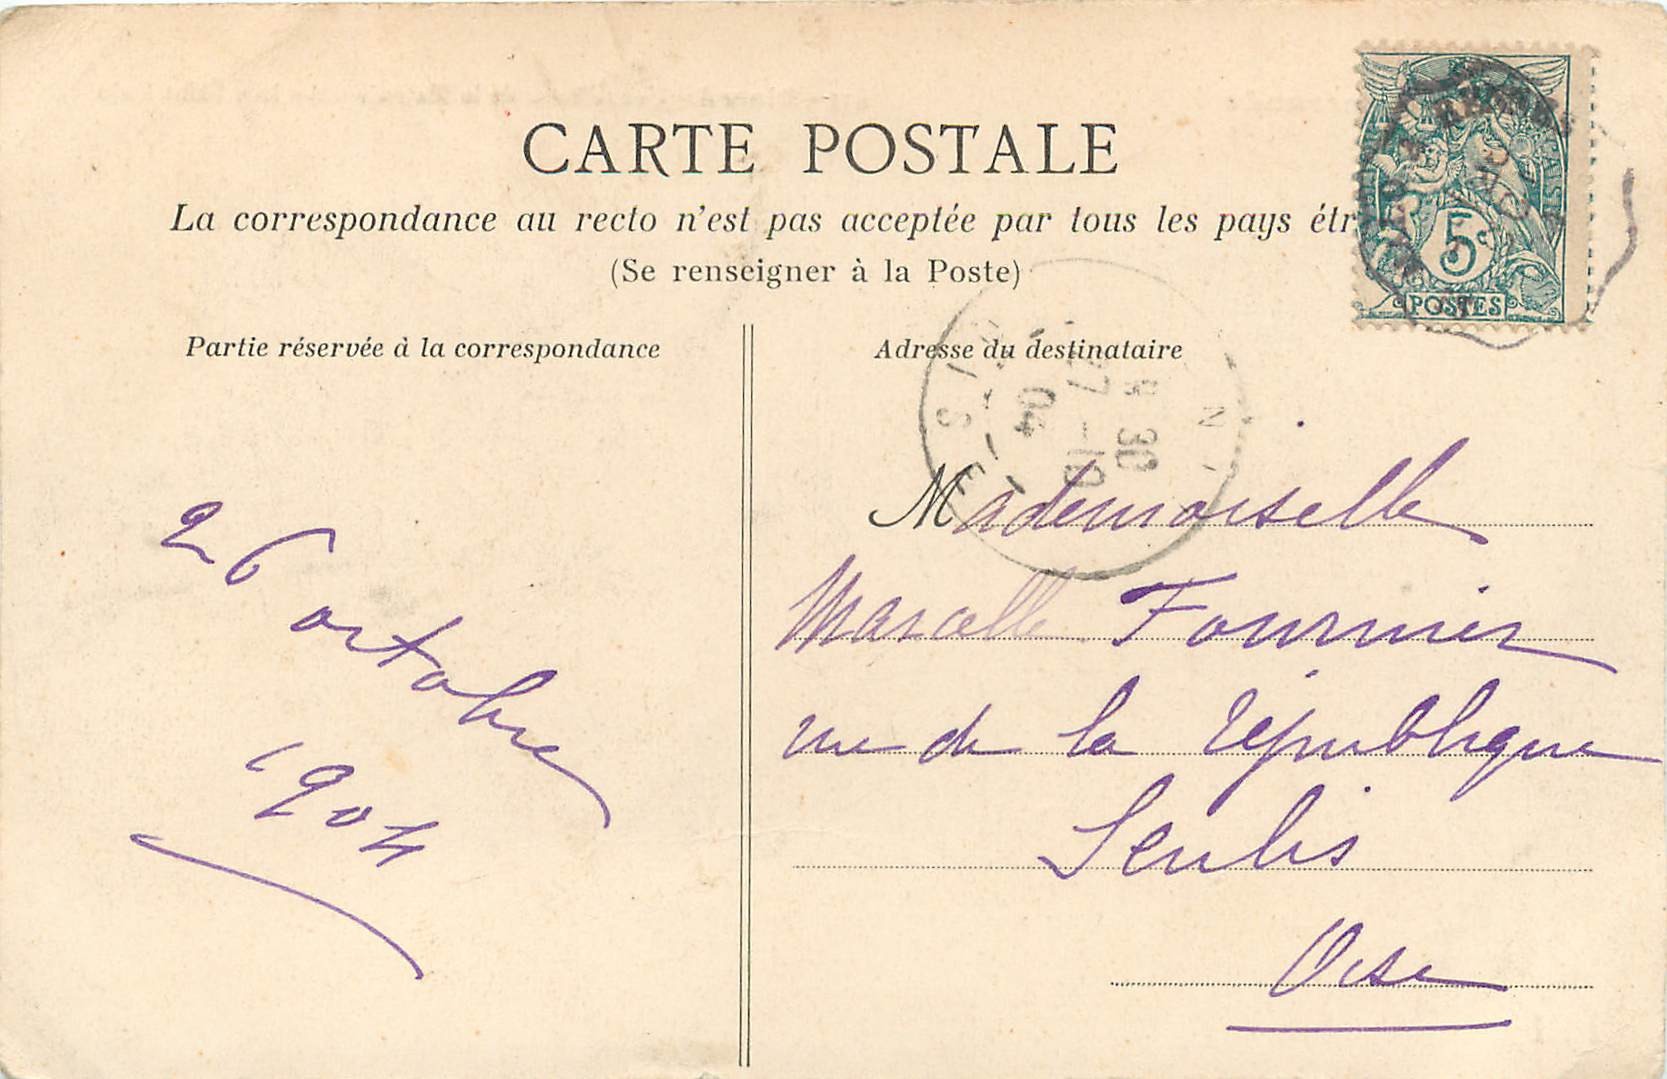 CARTE POSTALE
La correspondance au recto n'est pas acceptée par tous les pays étr
(Se renseigner à la Poste)
5c
POSTES
Partie réservée à la correspondance
26 octobre
1904
Adresse du destinataire
9 30
27 -10
04
OISE
Mademoiselle
Marcelle Fournier
rue de la République
Senlis
Oise